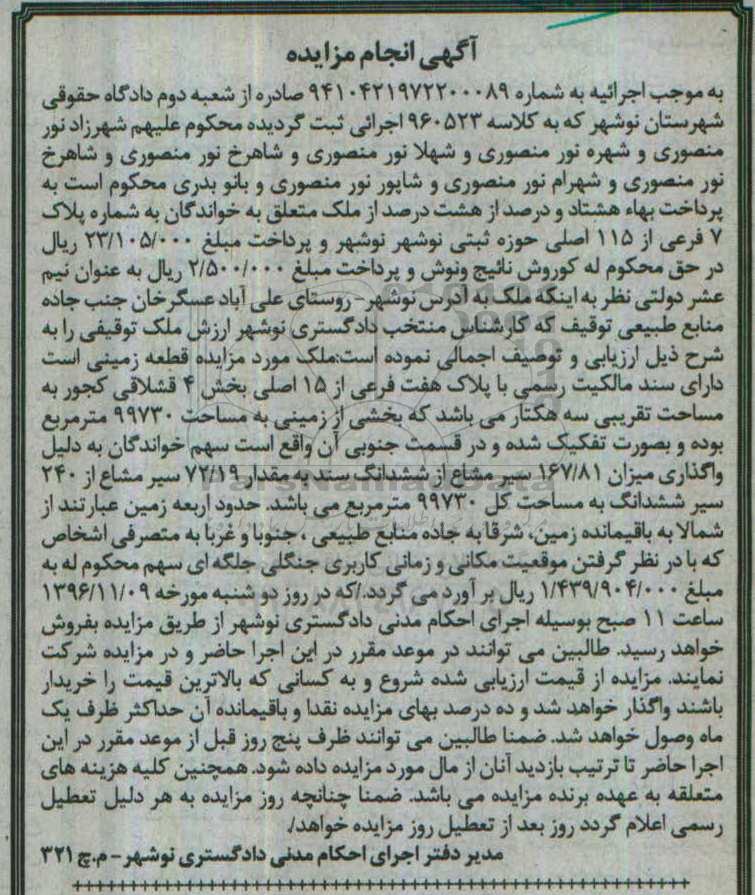 آگهی انجام مزایده
به موجب اجرائیه به شماره ۹۴۱۰۴۲۱۹۷۲۲۰۰۰۸۹ صادره از شعبه دوم دادگاه حقوقی
شهرستان نوشهر که به کلاسه ۹۶۰۵۲۳ اجرائی ثبت گردیده محکوم علیهم شهرزاد نور
منصوری و شهره نور منصوری و شهلا نور منصوری و شاهرخ نور منصوری و شاهرخ
نور منصوری و شهرام نور منصوری و شاپور نور منصوری و بانو بدری محکوم است به
پرداخت بهاء هشتاد و درصد از هشت درصد از ملک متعلق به خواندگان به شماره پلاک
۷ فرعی از ۱۱۵ اصلی حوزه ثبتی نوشهر نوشهر و پرداخت مبلغ ۲۳/۱۰۵/۰۰۰ ریال
در حق محکوم له کوروش نائیج ونوش و پرداخت مبلغ ۲/۵۰۰/۰۰۰ ریال به عنوان نیم
عشر دولتی نظر به اینکه ملک به آدرس نوشهر- روستای علی آباد عسگرخان جنب جاده
منابع طبیعی توقیف که کارشناس منتخب دادگستری نوشهر ارزش ملک توقیفی را به
شرح ذیل ارزیابی و توصیف اجمالی نموده است:ملک مورد مزایده قطعه زمینی است
دارای سند مالکیت رسمی با پلاک هفت فرعی از ۱۵ اصلی بخش ۴ قشلاقی کجور به
مساحت تقریبی سه هکتار می باشد که بخشی از زمینی به مساحت ۹۹۷۳۰ مترمربع
بوده و بصورت تفکیک شده و در قسمت جنوبی آن واقع است سهم خواندگان به دلیل
واگذاری میزان ۱۶۷/۸۱ سیر مشاع از ششدانگ سند به مقدار ۷۲/۱۹ سیر مشاع از ۲۴۰
سیر ششدانگ به مساحت کل ۹۹۷۳۰ مترمربع می باشد. حدود اربعه زمین عبارتند از
شمالا به باقیمانده زمین، شرقا به جاده منابع طبیعی ، جنوبا و غربا به متصرفی اشخاص
که با در نظر گرفتن موقعیت مکانی و زمانی کاربری جنگلی جلگه ای سهم محکوم له به
مبلغ ۱/۴۳۹/۹۰۴/۰۰۰ ریال بر آورد می گردد./که در روز دو شنبه مورخه ۱۳۹۶/۱۱/۰۹
ساعت ۱۱ صبح بوسیله اجرای احکام مدنی دادگستری نوشهر از طریق مزایده بفروش
خواهد رسید. طالبین می توانند در موعد مقرر در این اجرا حاضر و در مزایده شرکت
نمایند. مزایده از قیمت ارزیابی شده شروع و به کسانی که بالاترین قیمت را خریدار
باشند واگذار خواهد شد و ده درصد بهای مزایده نقدا و باقیمانده آن حداکثر ظرف یک
ماه وصول خواهد شد. ضمنا طالبین می توانند ظرف پنج روز قبل از موعد مقرر در این
اجرا حاضر تا ترتیب بازدید آنان از مال مورد مزایده داده شود. همچنین کلیه هزینه های
متعلقه به عهده برنده مزایده می باشد. ضمنا چنانچه روز مزایده به هر دلیل تعطیل
رسمی اعلام گردد روز بعد از تعطیل روز مزایده خواهد/.
مدیر دفتر اجرای احکام مدنی دادگستری نوشهر - م.چ ۳۲۱